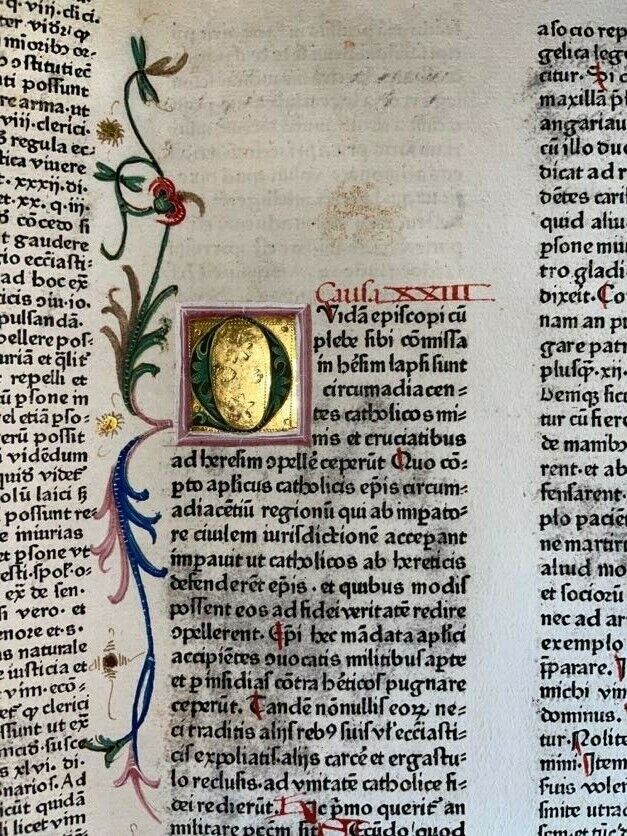 q. viii. dici.
mioribꝰ or-
ꝯstituti eē
ti possunt
re arma. ut
viii. clerici.
regula ec-
tica viuere
t. xxxii. di.
et. xx. q. iii.
ꝯcedo si
t gaudere
cio eccīasti-
ad hoc ex̄
ticis
pulsandā.
pellere pos-
iuriā et q̄lit̄
repelli et
ū psone in
vel etiā pso-
verū possit
i videdum
quid videt̄
solū laici s̄
possunt re-
e miurias
et psone vt
ex̄ de sen.
si vero. et
enore et. s.
us naturale
e iusticia et
vim. ecō-
et q̄ clerici
ssunt ut ex̄
susce
s xlvi. di.
narios. Ad
icut quidā
i licet vim
Causa XXIII
QVidā episcopi cū
plebe sibi cōmissa
in hēsim lapsi sunt
circumadiacen-
tes catholicos mi-
nis et cruciatibus
ad heresim ꝯpellē ceperūt Quo cō-
ꝑto ap̄licus catholicis ep̄is circum-
adiacētiū regionū qui ab impato-
re ciuilem iurisdictionē acceperant
impauit ut catholicos ab hereticis
defenderēt ep̄is. et quibus modis
possent eos ad fidei veritatē redire
ꝯpellerent. Ep̄i hec mādata ap̄lici
accipiētes ꝯuocatis militibus apte
et ꝑ insidias cōtra hēticos pugnare
ceperūt. Tandē nōnullis eoꝝ ne-
ci traditis alijs rebꝰ suis vl' eccīasti-
cis expoliatis. alijs carcē et ergastu-
lo reclusis. ad vnitatē catholice fi-
dei redierūt. Hic p̄mo querit̄ an
militare peccm̄ sit. Secūdo quod
a socio rep
gelica lege
citur. Si q
maxillā p̄b
angariau
cū illo duo
dicat ad r
dētes cari
quid aliu
psone miu
tro gladi
dixeit. Co
nam an pr
gare patr
plusq̄. xii.
Deniq̄ sic
tur cū fier
de manibꝰ
rent. et ab
fensarent.
plo pacien
ne martiri
aliud mo
et sociorū
nec ad ar
exemplo
p̄parare.
michi vim
dominus.
tur. Nolite
mini. Item
suis volen
smite utrac